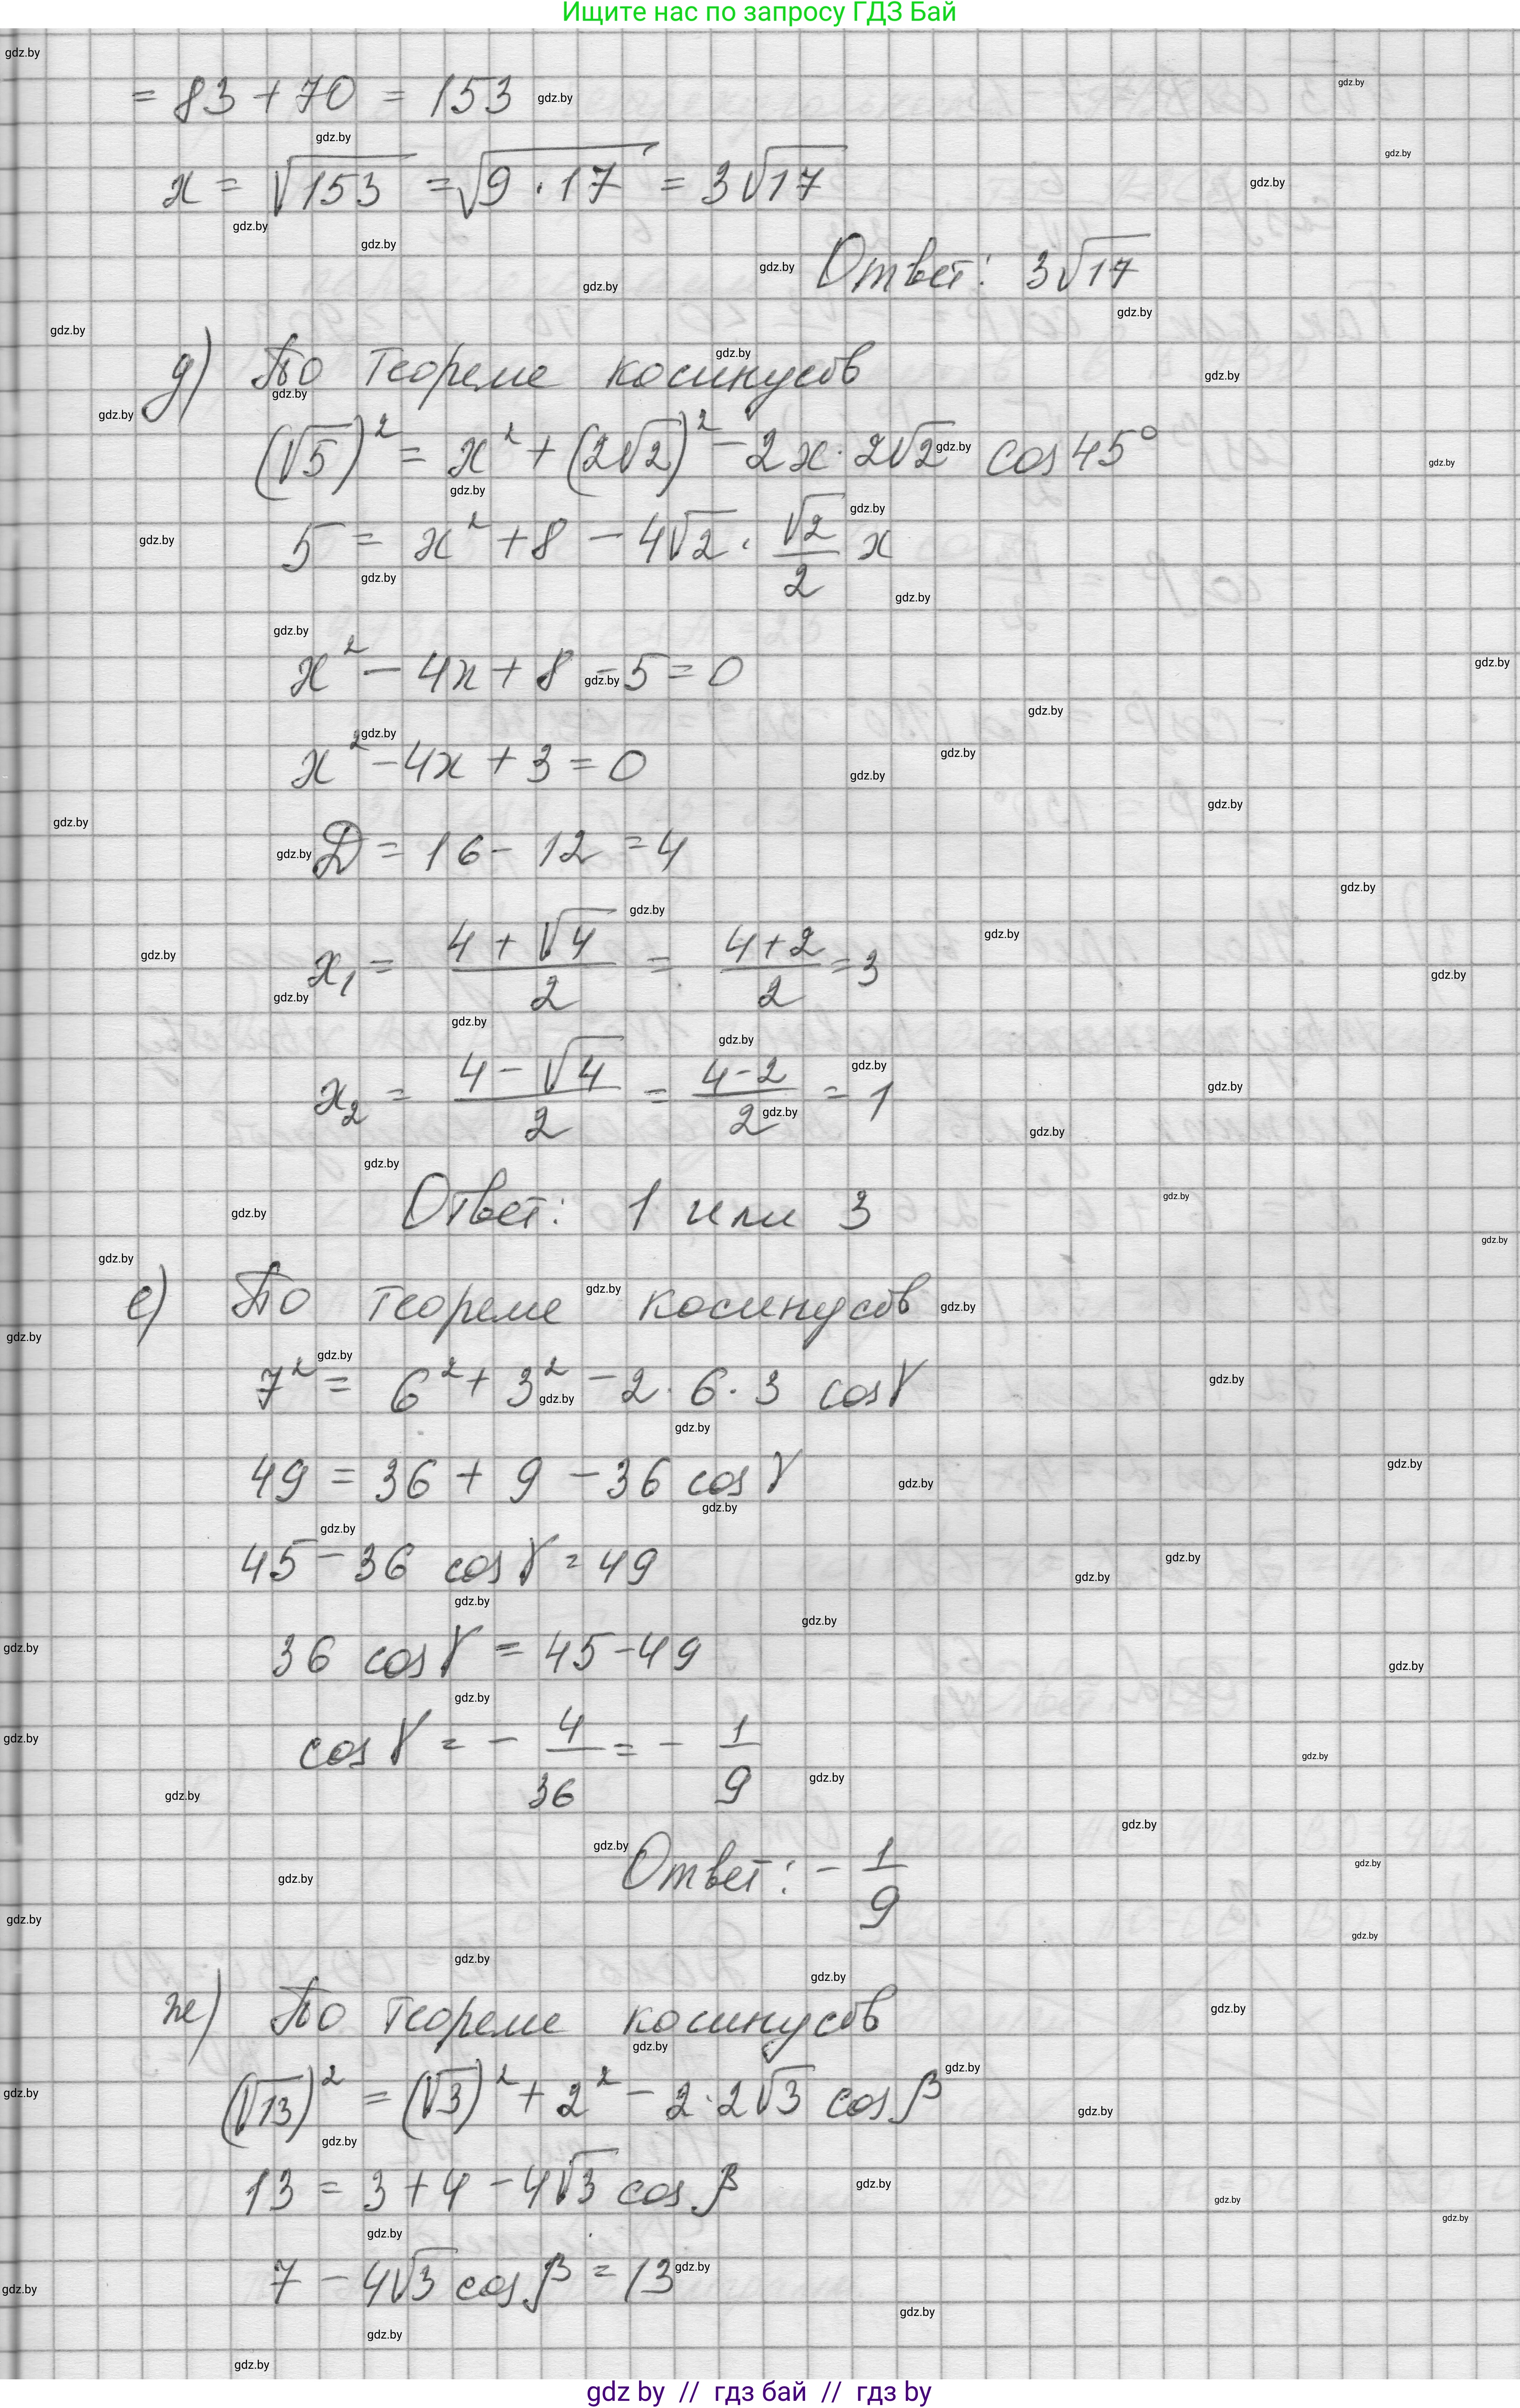 Ищите нас по запросу ГДЗ Бай
= 83 + 70 = 153
x = √153 = √9 · 17 = 3√17
Ответ: 3√17
д) По теореме косинусов
(√5)² = x² + (2√2)² - 2x · 2√2 cos 45°
5 = x² + 8 - 4√2 · √2/2 x
x² - 4x + 8 - 5 = 0
x² - 4x + 3 = 0
D = 16 - 12 = 4
x₁ = (4 + √4)/2 = (4 + 2)/2 = 3
x₂ = (4 - √4)/2 = (4 - 2)/2 = 1
Ответ: 1 или 3
е) По теореме косинусов
7² = 6² + 3² - 2 · 6 · 3 cos γ
49 = 36 + 9 - 36 cos γ
45 - 36 cos γ = 49
36 cos γ = 45 - 49
cos γ = - 4/36 = - 1/9
Ответ: - 1/9
ж) По теореме косинусов
(√13)² = (√3)² + 2² - 2 · 2√3 cos β
13 = 3 + 4 - 4√3 cos β
7 - 4√3 cos β = 13
gdz by // гдз бай // гдз by